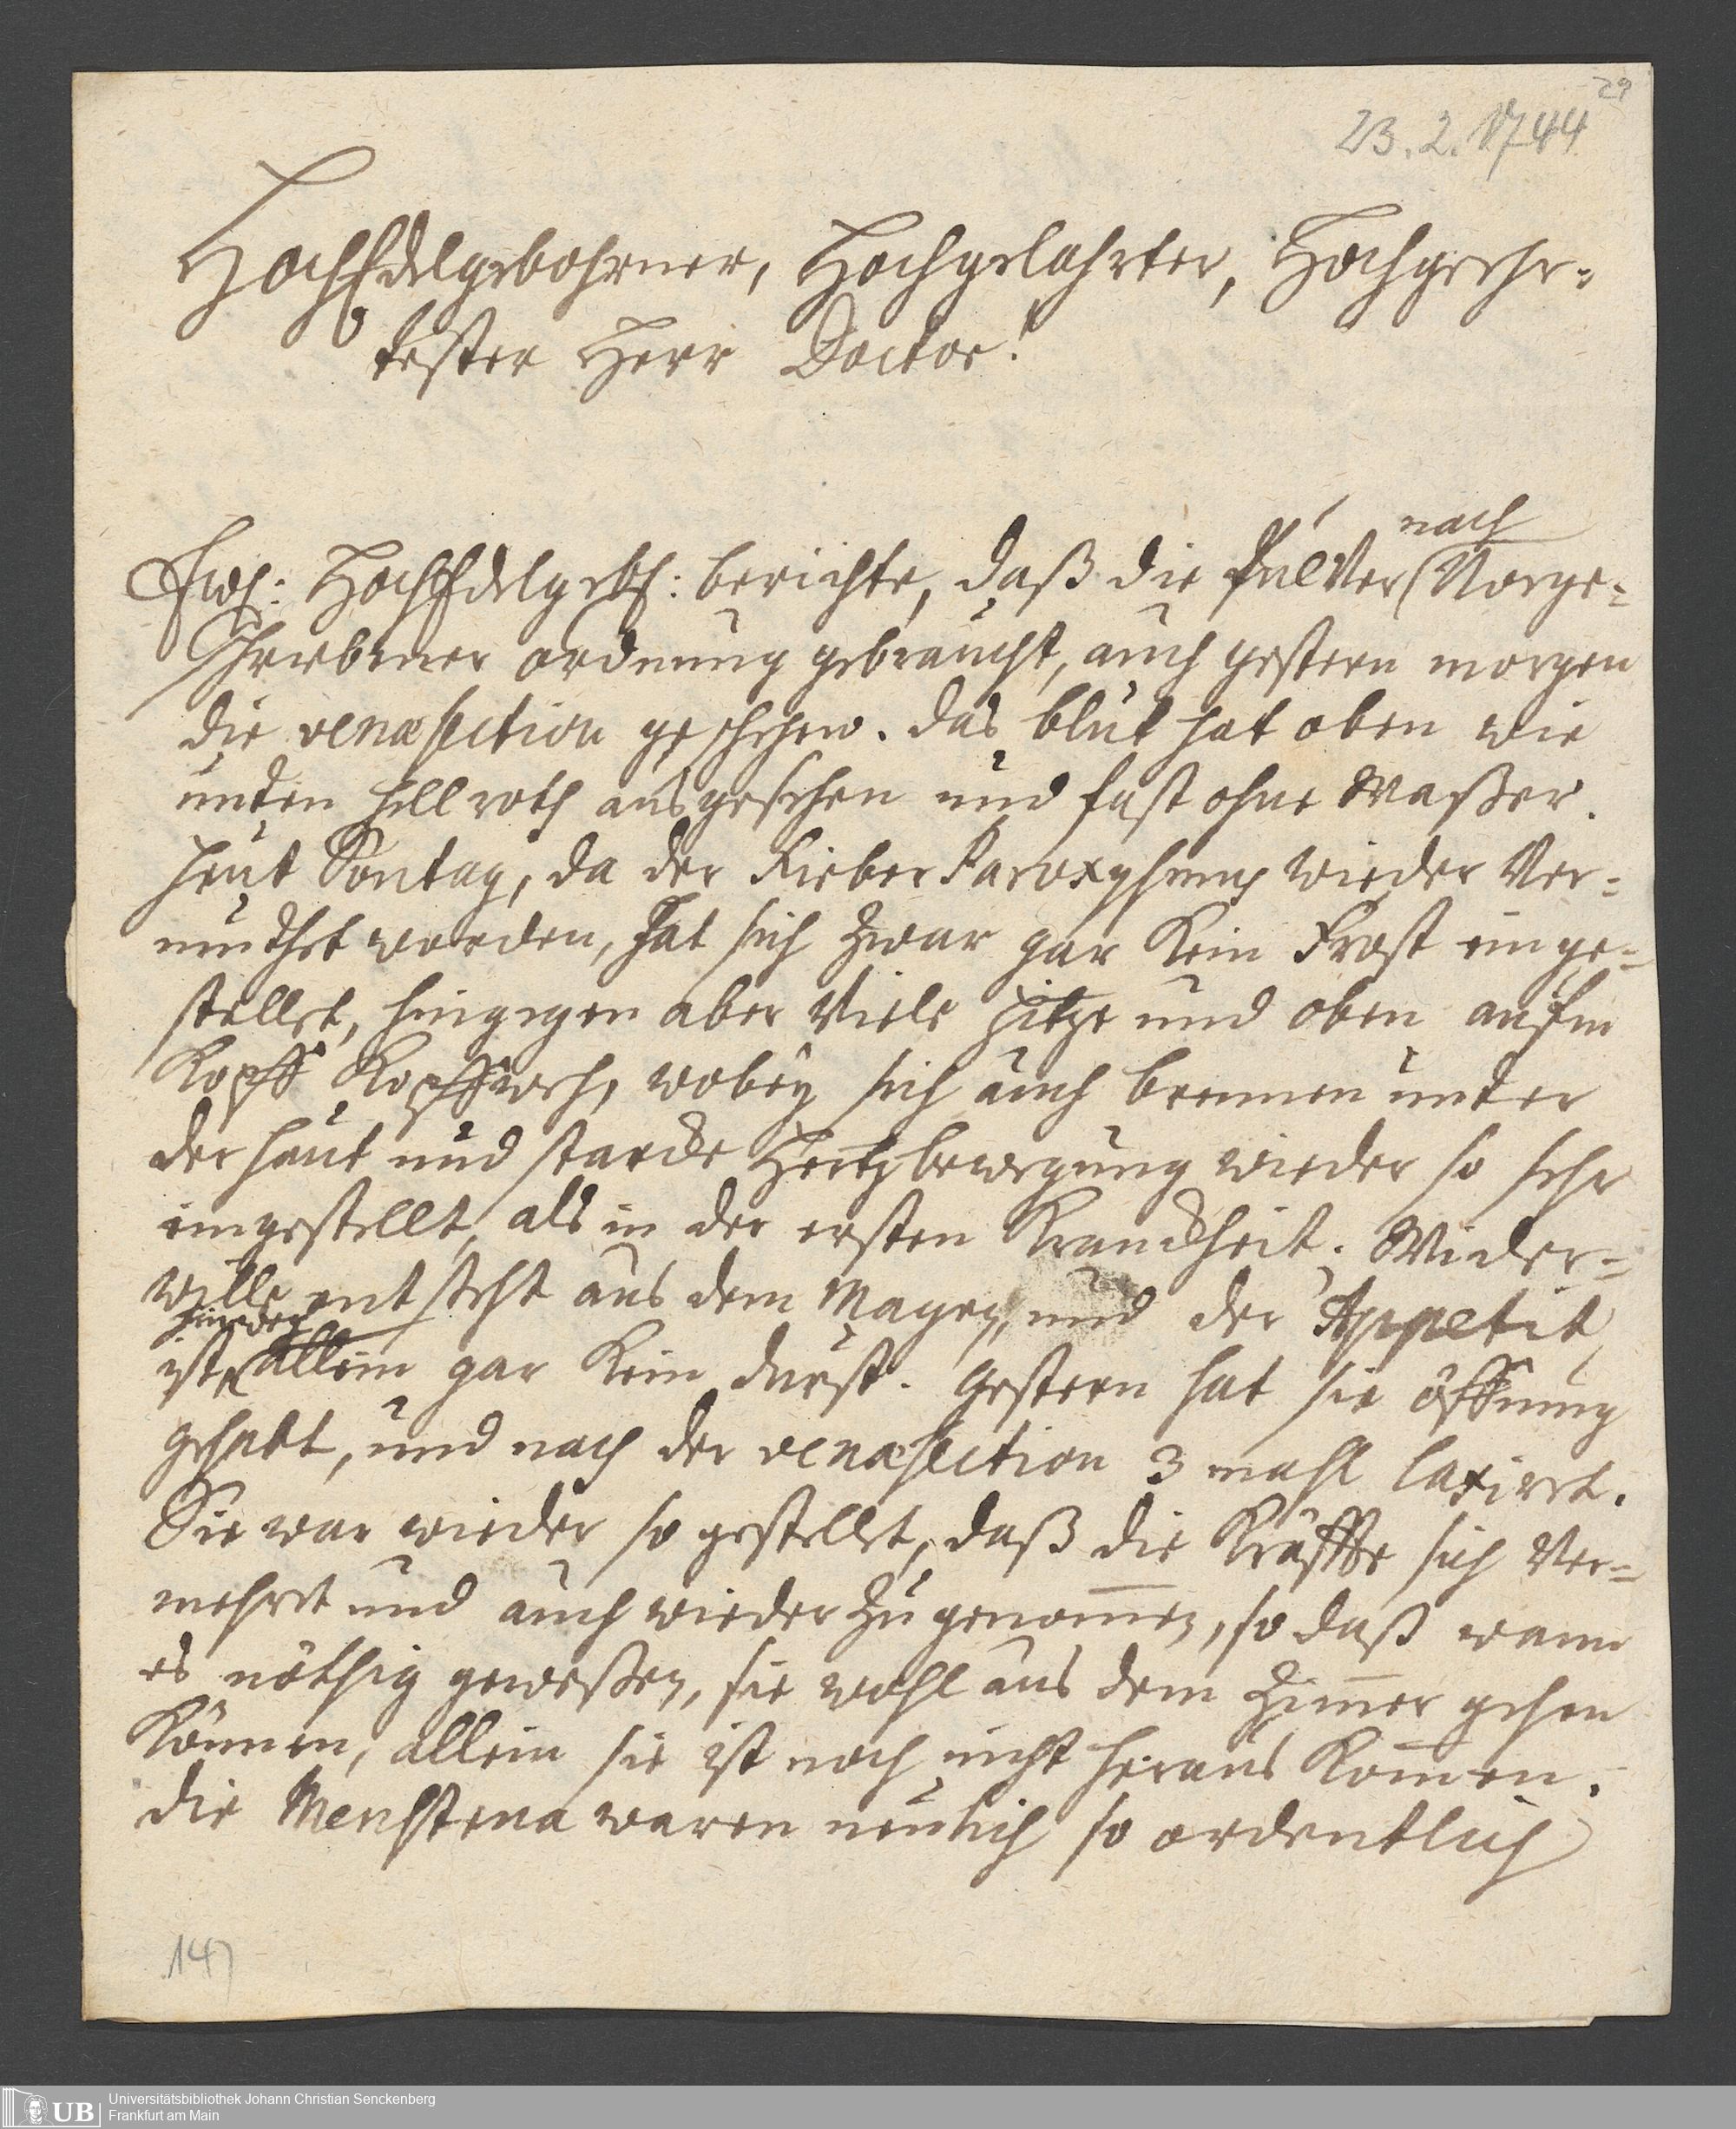 29
23.2.1744
HochEdelgebohrner, Hochgelahrter, Hochgeehr-
tester Herr Doctor!
Ewh: HochEdelgebh: berichte, daß die Pulver nach Vorge-
schriebener ordnung gebraucht, auch gestern morgen
die venæsection geschehen. das blut hat oben wie
unten hellroth ausgesehen und fast ohne Waßer.
heut Sontag, da der Fieber Paroxysmus wieder Ver-
muthet worden, hat sich zwar gar kein Frost einge-
stellet, hingegen aber Viele Hitze und oben aufm
Kopff Kopffweh, wobey sich auch brennen unter
der haut und starcke Hertzbewegung wieder so sehr
eingestellt, als in der ersten Kranckheit. Wieder-
wille entsteht aus dem Magen, und der Appetit
ist hinweg allein gar kein durst. Gestern hat sie öffnung
gehabt, und nach der venæsection 3 mahl laxiret.
Sie war wieder so gestellet, daß die Kräffte sich Ver-
mehret und auch wieder zugenom̅en, so daß wann
es nöthig geweßen, sie wohl aus dem Zim̅er gehen
können, allein sie ist noch nicht heraus kom̅en.
die Menstrua waren neulich so ordentlich
147
UB
Universitätsbibliothek Johann Christian Senckenberg
Frankfurt am Main